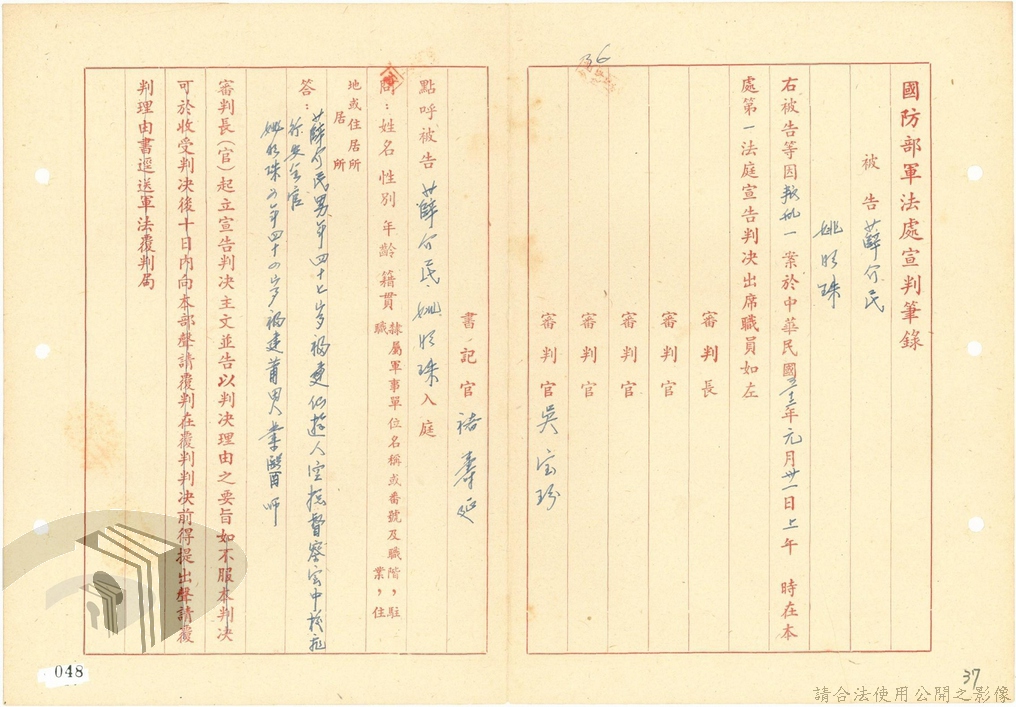 國防部軍法處宣判筆錄
被告薛介民
姚明珠
右被告等因叛亂一案於中華民國五十三年元月廿一日上午 時在本
處第一法庭宣告判決出席職員如左
審判長
審判官
審判官
審判官
審判官 吳
書記官 褚壽延
點呼被告 薛介民、姚明珠入庭
問：姓名 性別 年齡 籍貫 隸屬軍事單位名稱或番號及職階，駐
職業，住
地或住居所
居所
答：薛介民男年四十七歲福建仙遊人空總督察室中校飛
行安全官
姚明珠女年四十 歲福建莆田人業醫師
審判長(官)起立宣告判決主文並告以判決理由之要旨如不服本判決
可於收受判決後十日內向本部聲請覆判在覆判判決前得提出聲請覆
判理由書逕送軍法覆判局
36
37
048
請合法使用公開之影像